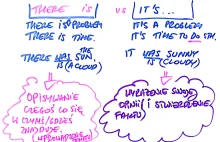 THERE IS
VS
IT'S...
THERE IS A PROBLEM
THERE IS TIME.
IT'S A PROBLEM
IT'S TIME TO DO STH.
THERE WAS THE SUN.
IS (A CLOUD)
IT WAS SUNNY
IS (CLOUDY)
OPISYWANIE
CZEGOŚ CO SIĘ
W CZYMŚ/GDZIEŚ
ZNAJDUJE.
WPROWADZENIE
WYRAŻENIE SWOJEJ
OPINII / STWIERDZENIE
FAKTU